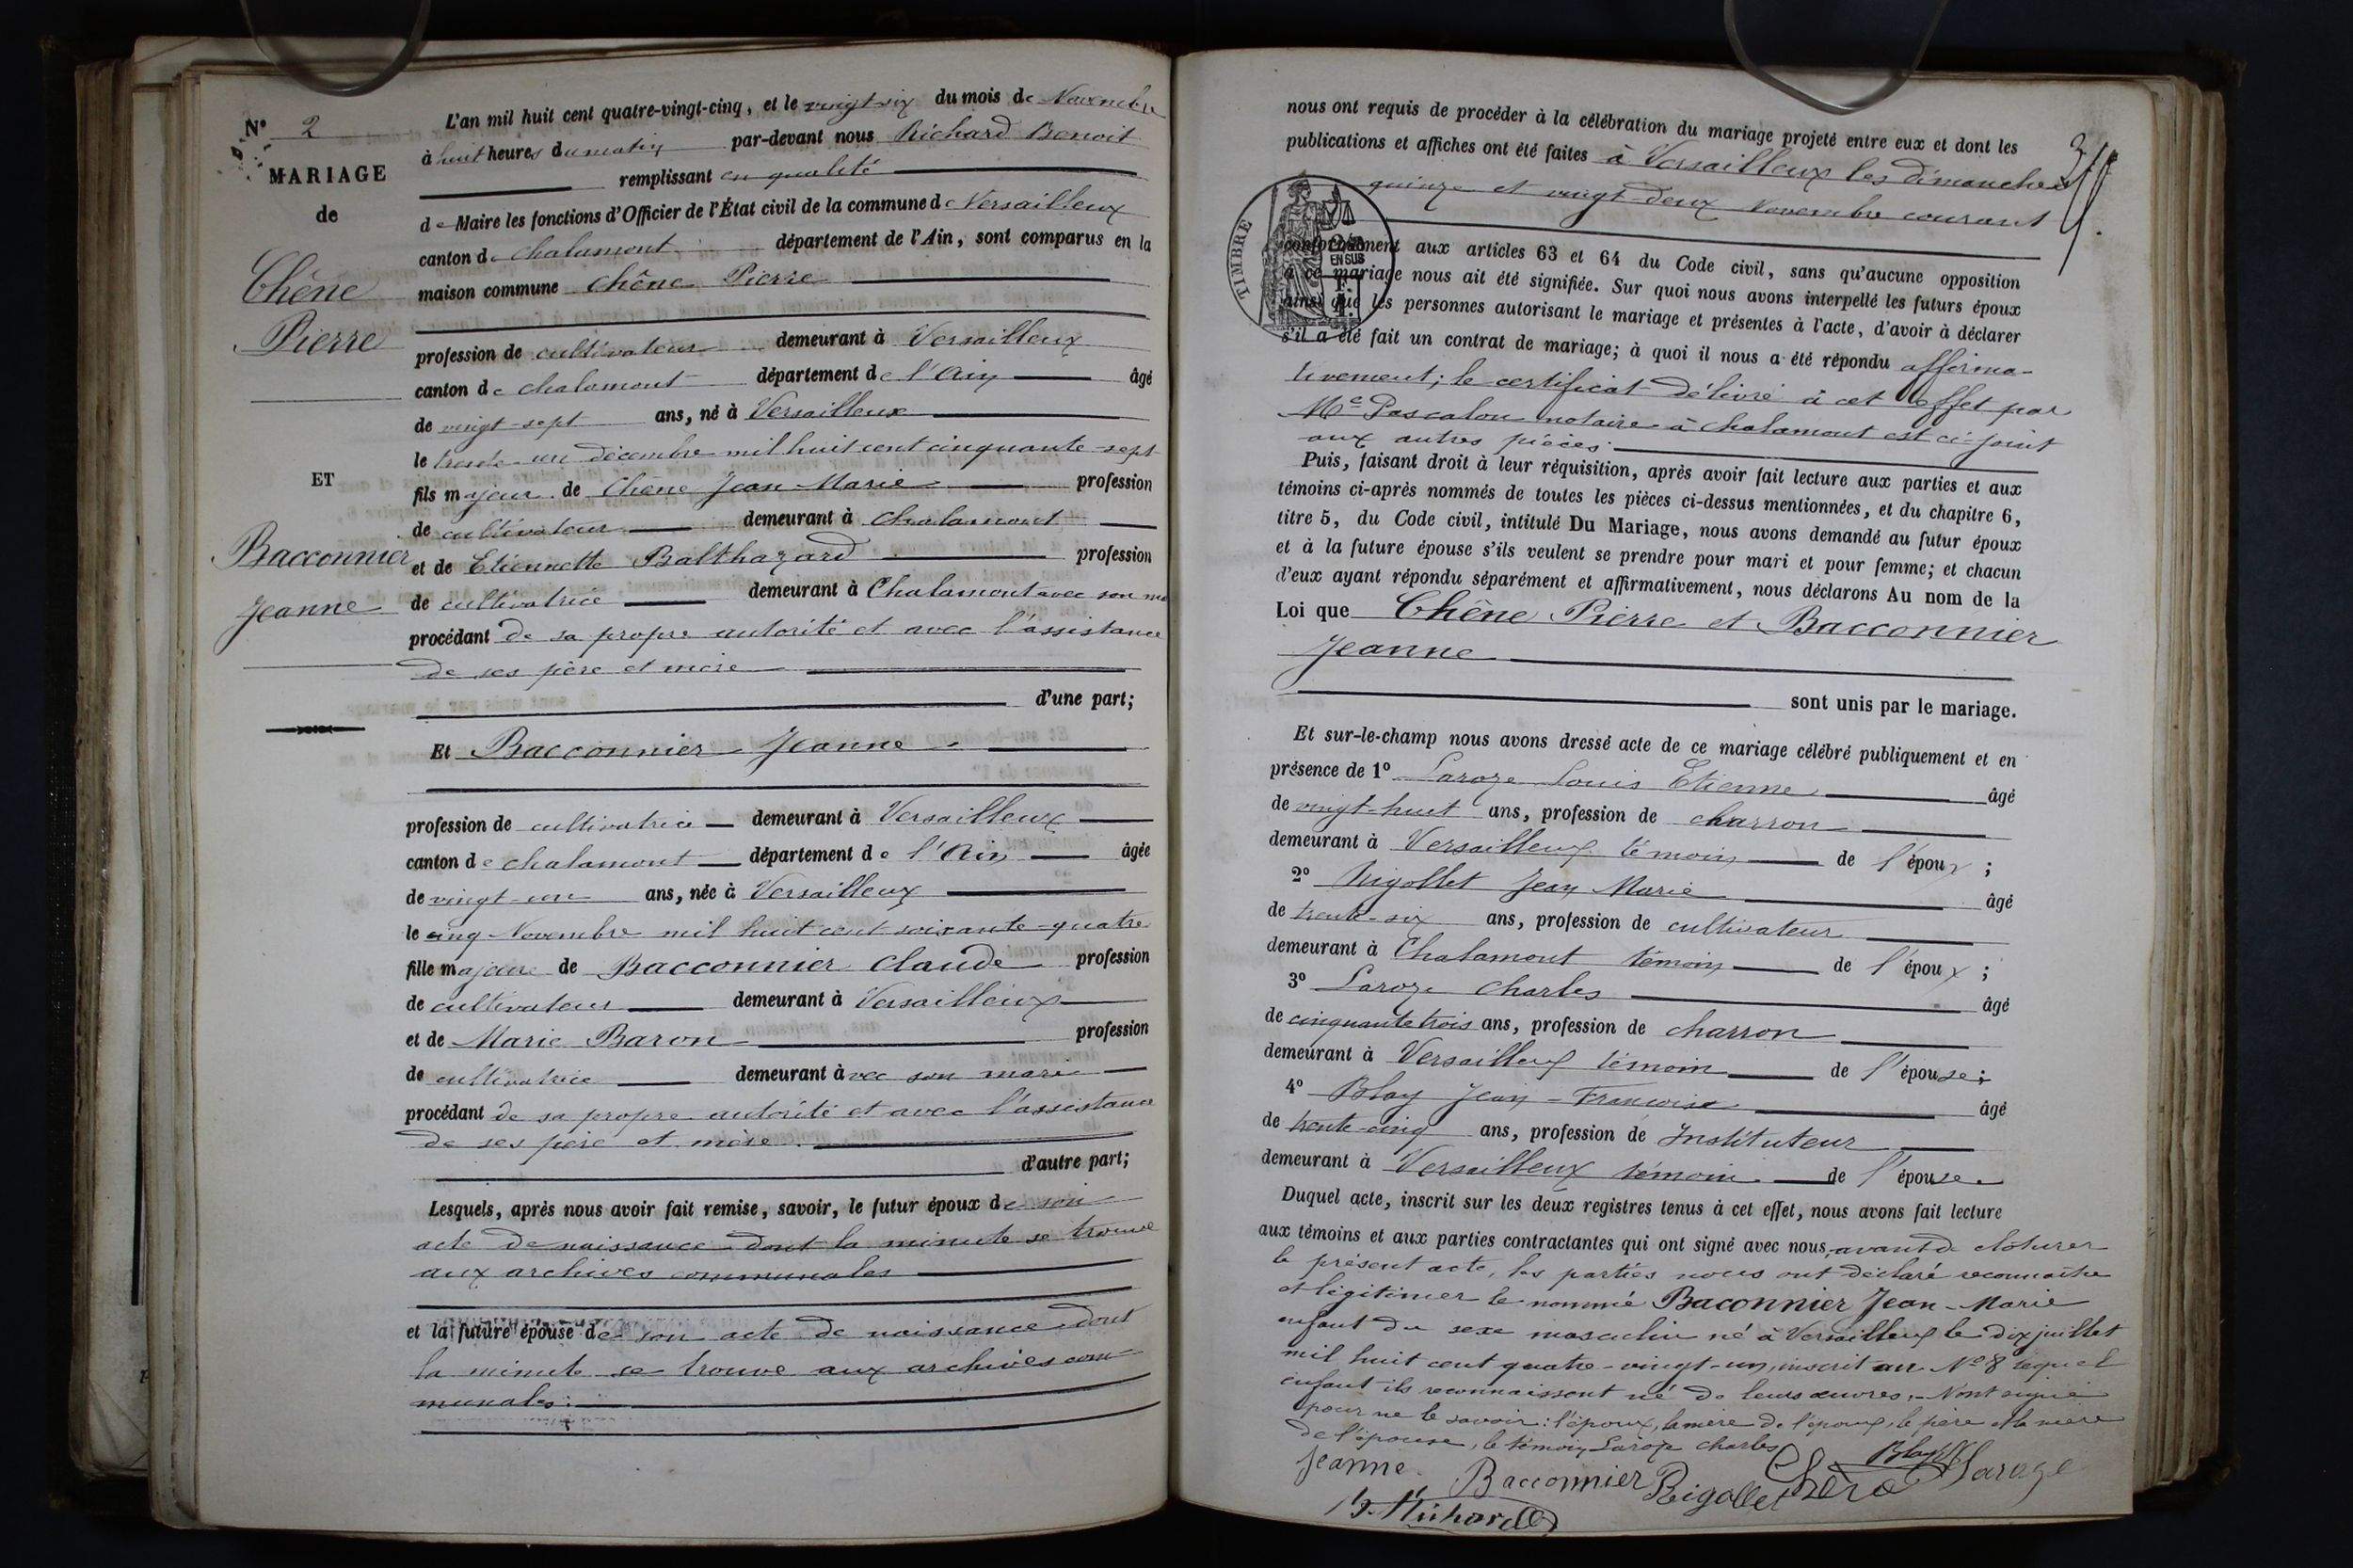 N° 2
MARIAGE
de
Chêne
Pierre
ET
Bacconnier
Jeanne
L'an mil huit cent quatre-vingt-cinq, et le vingt-six du mois de Novembre
à huit heures du matin par-devant nous Richard Benoit
remplissant en qualité
de Maire les fonctions d'Officier de l'État civil de la commune de Versailleux
canton de Chalamont département de l'Ain, sont comparus en la
maison commune Chêne Pierre
profession de cultivateur demeurant à Versailleux
canton de chalamont département de l'Ain âgé
de vingt-sept ans, né à Versailleux
le trente-un décembre mil huit cent cinquante-sept
fils majeur de Chêne Jean-Marie profession
de cultivateur demeurant à Chalamont
et de Etiennette Balthazard profession
de cultivatrice demeurant à Chalamont avec son ma
procédant de sa propre autorité et avec l'assistance
de ses père et mère
d'une part;
Et Bacconnier Jeanne
profession de cultivatrice demeurant à Versailleux
canton de chalamont département de l'Ain âgée
de vingt-un ans, née à Versailleux
le cinq Novembre mil huit cent soixante-quatre
fille majeure de Bacconnier Claude profession
de cultivateur demeurant à Versailleux
et de Marie Baron profession
de cultivatrice demeurant avec son mari
procédant de sa propre autorité et avec l'assistance
de ses père et mère.
d'autre part;
Lesquels, après nous avoir fait remise, savoir, le futur époux de son
acte de naissance dont la minute se trouve
aux archives communales
et la future épouse de son acte de naissance dont
la minute se trouve aux archives com-
munales.
nous ont requis de procéder à la célébration du mariage projeté entre eux et dont les
publications et affiches ont été faites à Versailleux les dimanches
quinze et vingt-deux Novembre courant
TIMBRE
EN SUS
conformément aux articles 63 et 64 du Code civil, sans qu'aucune opposition
à ce mariage nous ait été signifiée. Sur quoi nous avons interpellé les futurs époux
ainsi que les personnes autorisant le mariage et présentes à l'acte, d'avoir à déclarer
s'il a été fait un contrat de mariage; à quoi il nous a été répondu affirma-
tivement; le certificat délivré à cet effet par
Me Pascalon notaire à Chalamont est ci-joint
aux autres pièces.
Puis, faisant droit à leur réquisition, après avoir fait lecture aux parties et aux
témoins ci-après nommés de toutes les pièces ci-dessus mentionnées, et du chapitre 6,
titre 5, du Code civil, intitulé Du Mariage, nous avons demandé au futur époux
et à la future épouse s'ils veulent se prendre pour mari et pour femme; et chacun
d'eux ayant répondu séparément et affirmativement, nous déclarons Au nom de la
Loi que Chêne Pierre et Bacconnier
Jeanne
sont unis par le mariage.
Et sur-le-champ nous avons dressé acte de ce mariage célébré publiquement et en
présence de 1° Laroze Louis Etienne âgé
de vingt-huit ans, profession de charron
demeurant à Versailleux témoin de l'époux;
2° Rigollet Jean Marie âgé
de trente-six ans, profession de cultivateur
demeurant à Chalamont témoin de l'époux;
3° Laroze Charles âgé
de cinquante trois ans, profession de charron
demeurant à Versailleux témoin de l'épouse;
4° Blay Jean-Francoise âgé
de trente-cinq ans, profession de Instituteur
demeurant à Versailleux témoin de l'épouse.
Duquel acte, inscrit sur les deux registres tenus à cet effet, nous avons fait lecture
aux témoins et aux parties contractantes qui ont signé avec nous, avant de clôturer
le présent acte, les parties nous ont déclaré reconnaître
et légitimer le nommé Baconnier Jean-Marie
enfant du sexe masculin né à Versailleux le dix juillet
mil huit cent quatre-vingt-un, inscrit au N° 8 lequel
enfant ils reconnaissent né de leurs œuvres. N'ont signé
pour ne le savoir: l'époux, la mère de l'époux, le père et la mère
de l'épouse, le témoin Laroze Charles
Jeanne Bacconnier Rigollet Blay Laroze
B. Richard